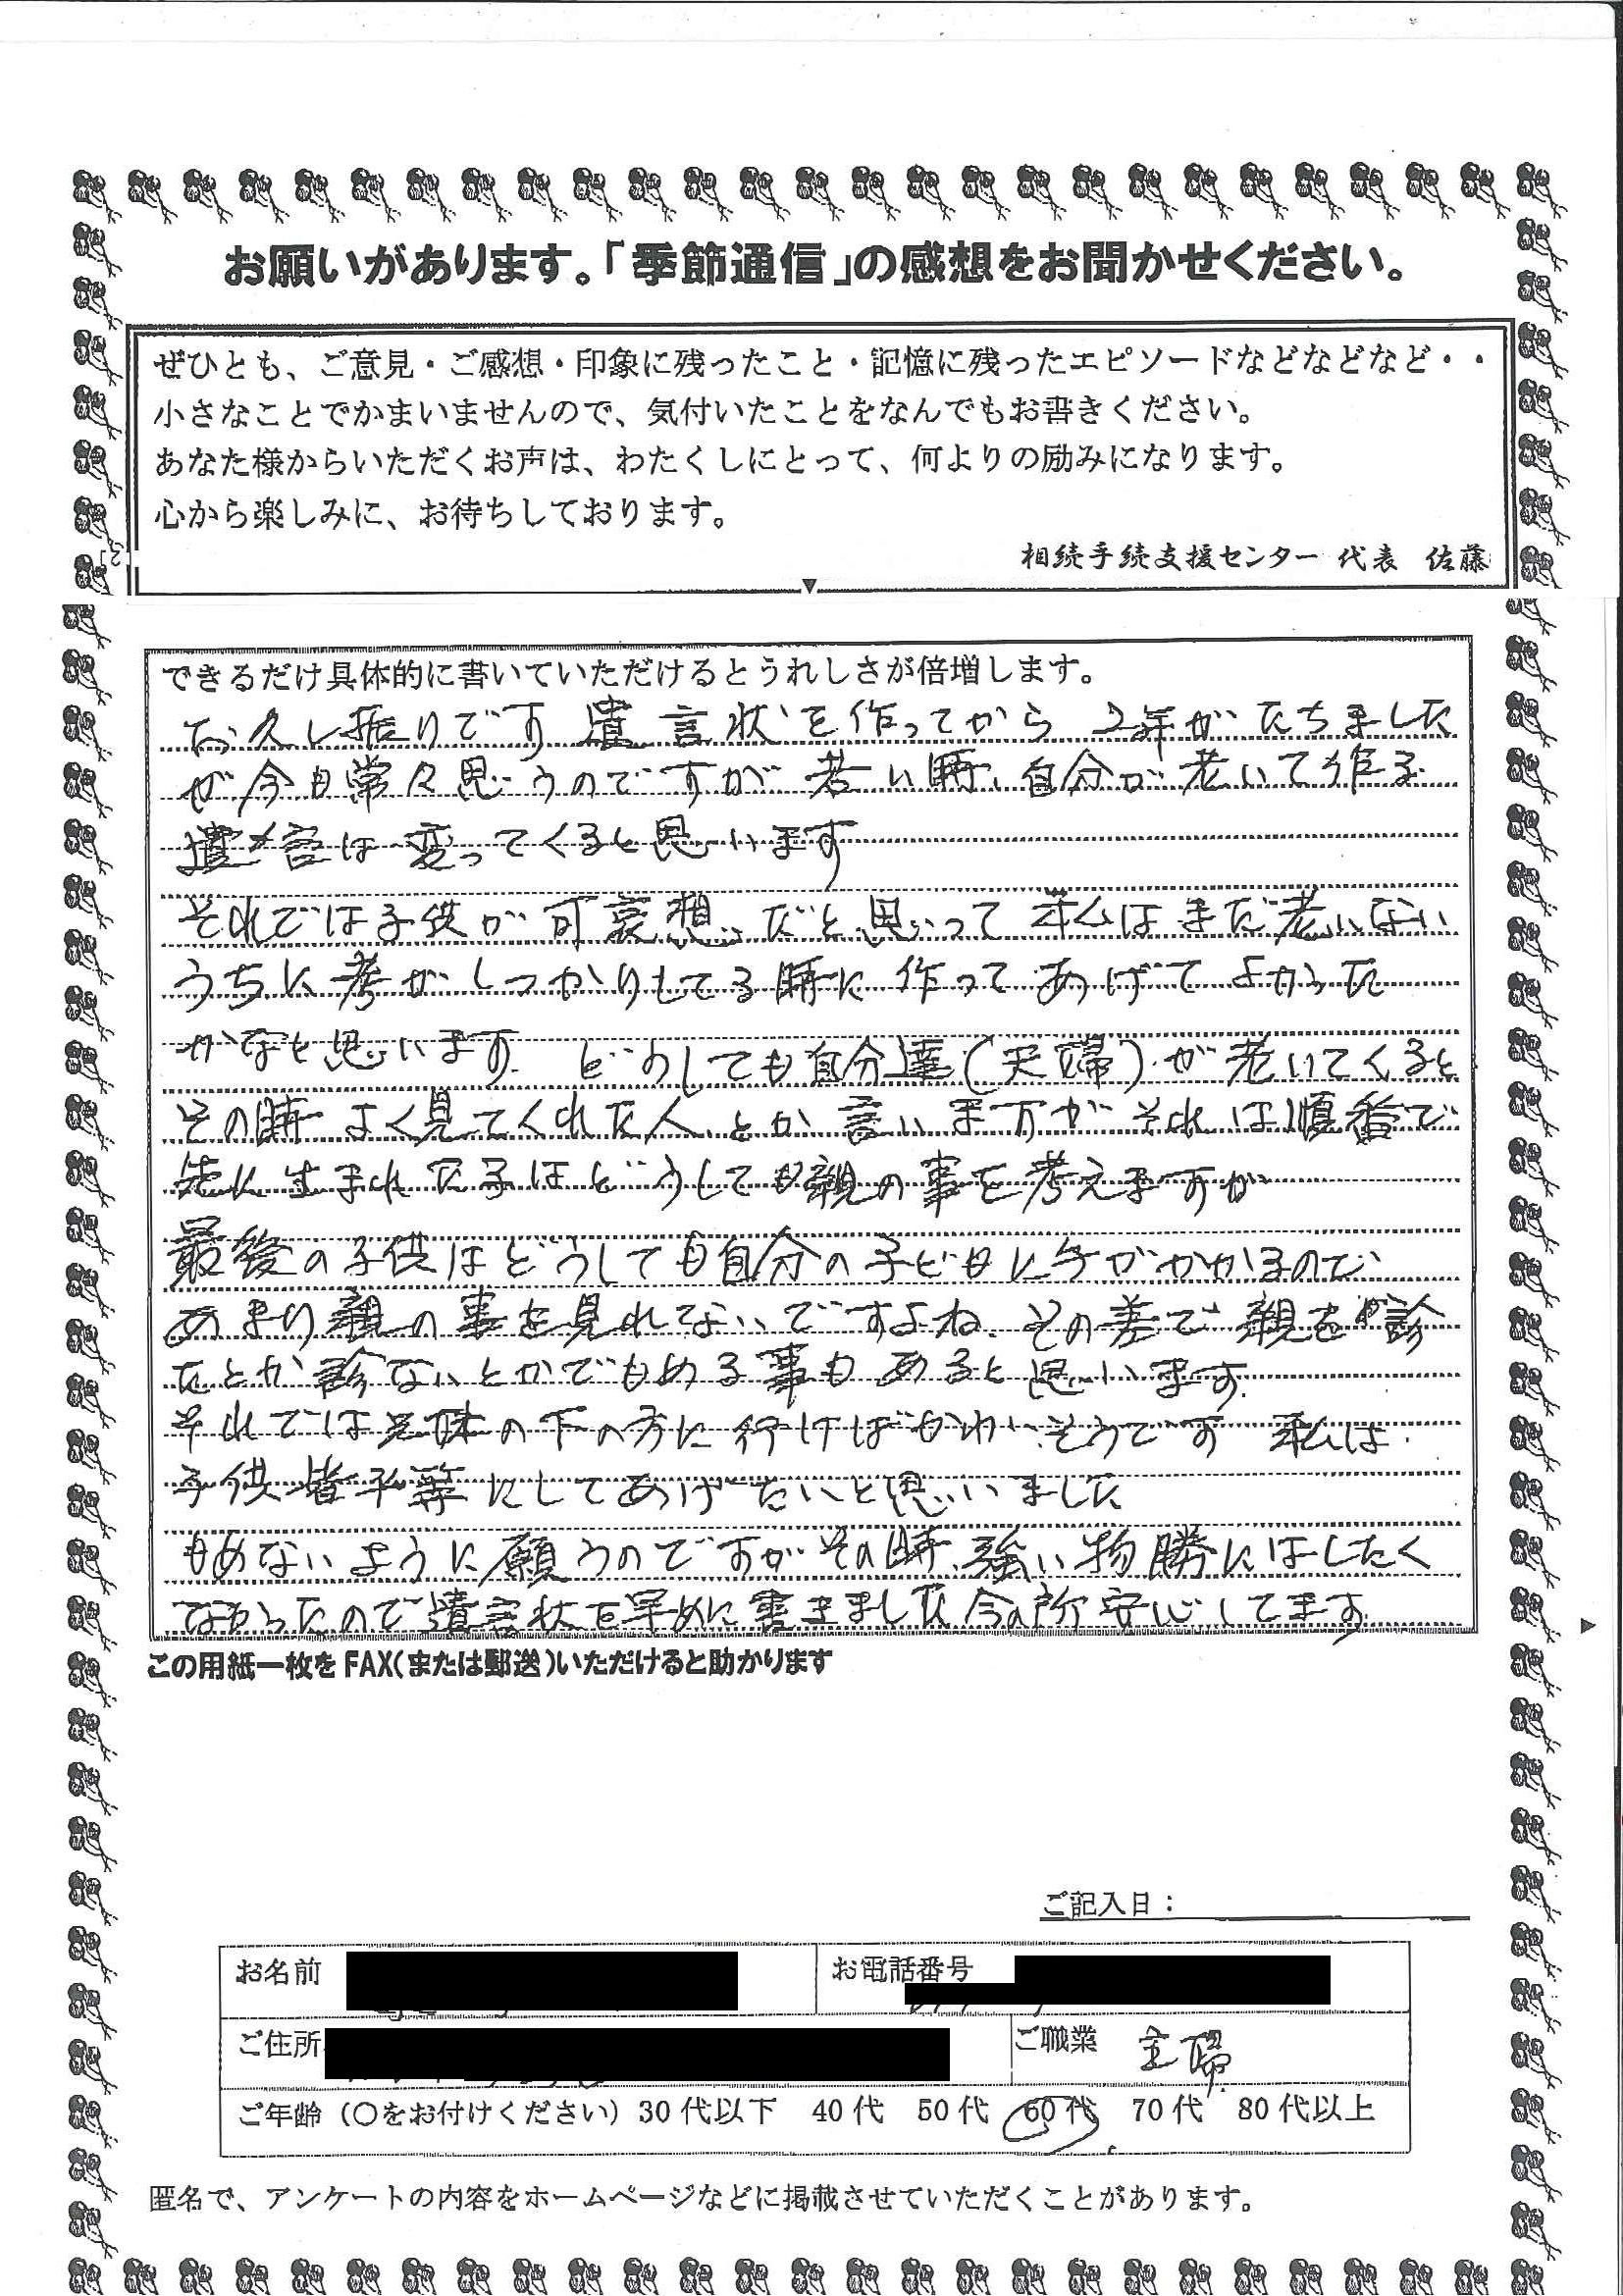 お願いがあります。「季節通信」の感想をお聞かせください。
ぜひとも、ご意見・ご感想・印象に残ったこと・記憶に残ったエピソードなどなどなど・・
小さなことでかまいませんので、気付いたことをなんでもお書きください。
あなた様からいただくお声は、わたくしにとって、何よりの励みになります。
心から楽しみに、お待ちしております。
相続手続支援センター 代表 佐藤
できるだけ具体的に書いていただけるとうれしさが倍増します。
お久し振りです 遺言状を作ってから 2年がたちました
が今も常々思うのですが 若い時、自分が老いて作る
遺言は変ってくると思います
それでは子供が可哀想だと思って 私はまだ老いない
うちに考がしっかりしてる時に作ってあげてよかった
かなと思います。どうしても自分達(夫婦)が老いてくると
その時よく見てくれた人とか言いますがそれは順番で
先に生まれた子はどうしても親の事を考えますが
最後の子供はどうしても自分の子どもに手がかかるので
あまり親の事を見れてないですよね、その差で親を診
たとか診ないとかでもめる事もあると思います。
それでは兄妹の下の方に行けばかわいそうです 私は
子供皆平等にしてあげたいと思いました
もめないように願うのですがその時、強い物勝にはしたく
なかったので遺言状を早めに書きました 今の所安心してます。
この用紙一枚をFAX(または郵送)いただけると助かります
ご記入日：
お名前
お電話番号
ご住所
ご職業 主婦
ご年齢（○をお付けください）30代以下 40代 50代 60代 70代 80代以上
匿名で、アンケートの内容をホームページなどに掲載させていただくことがあります。